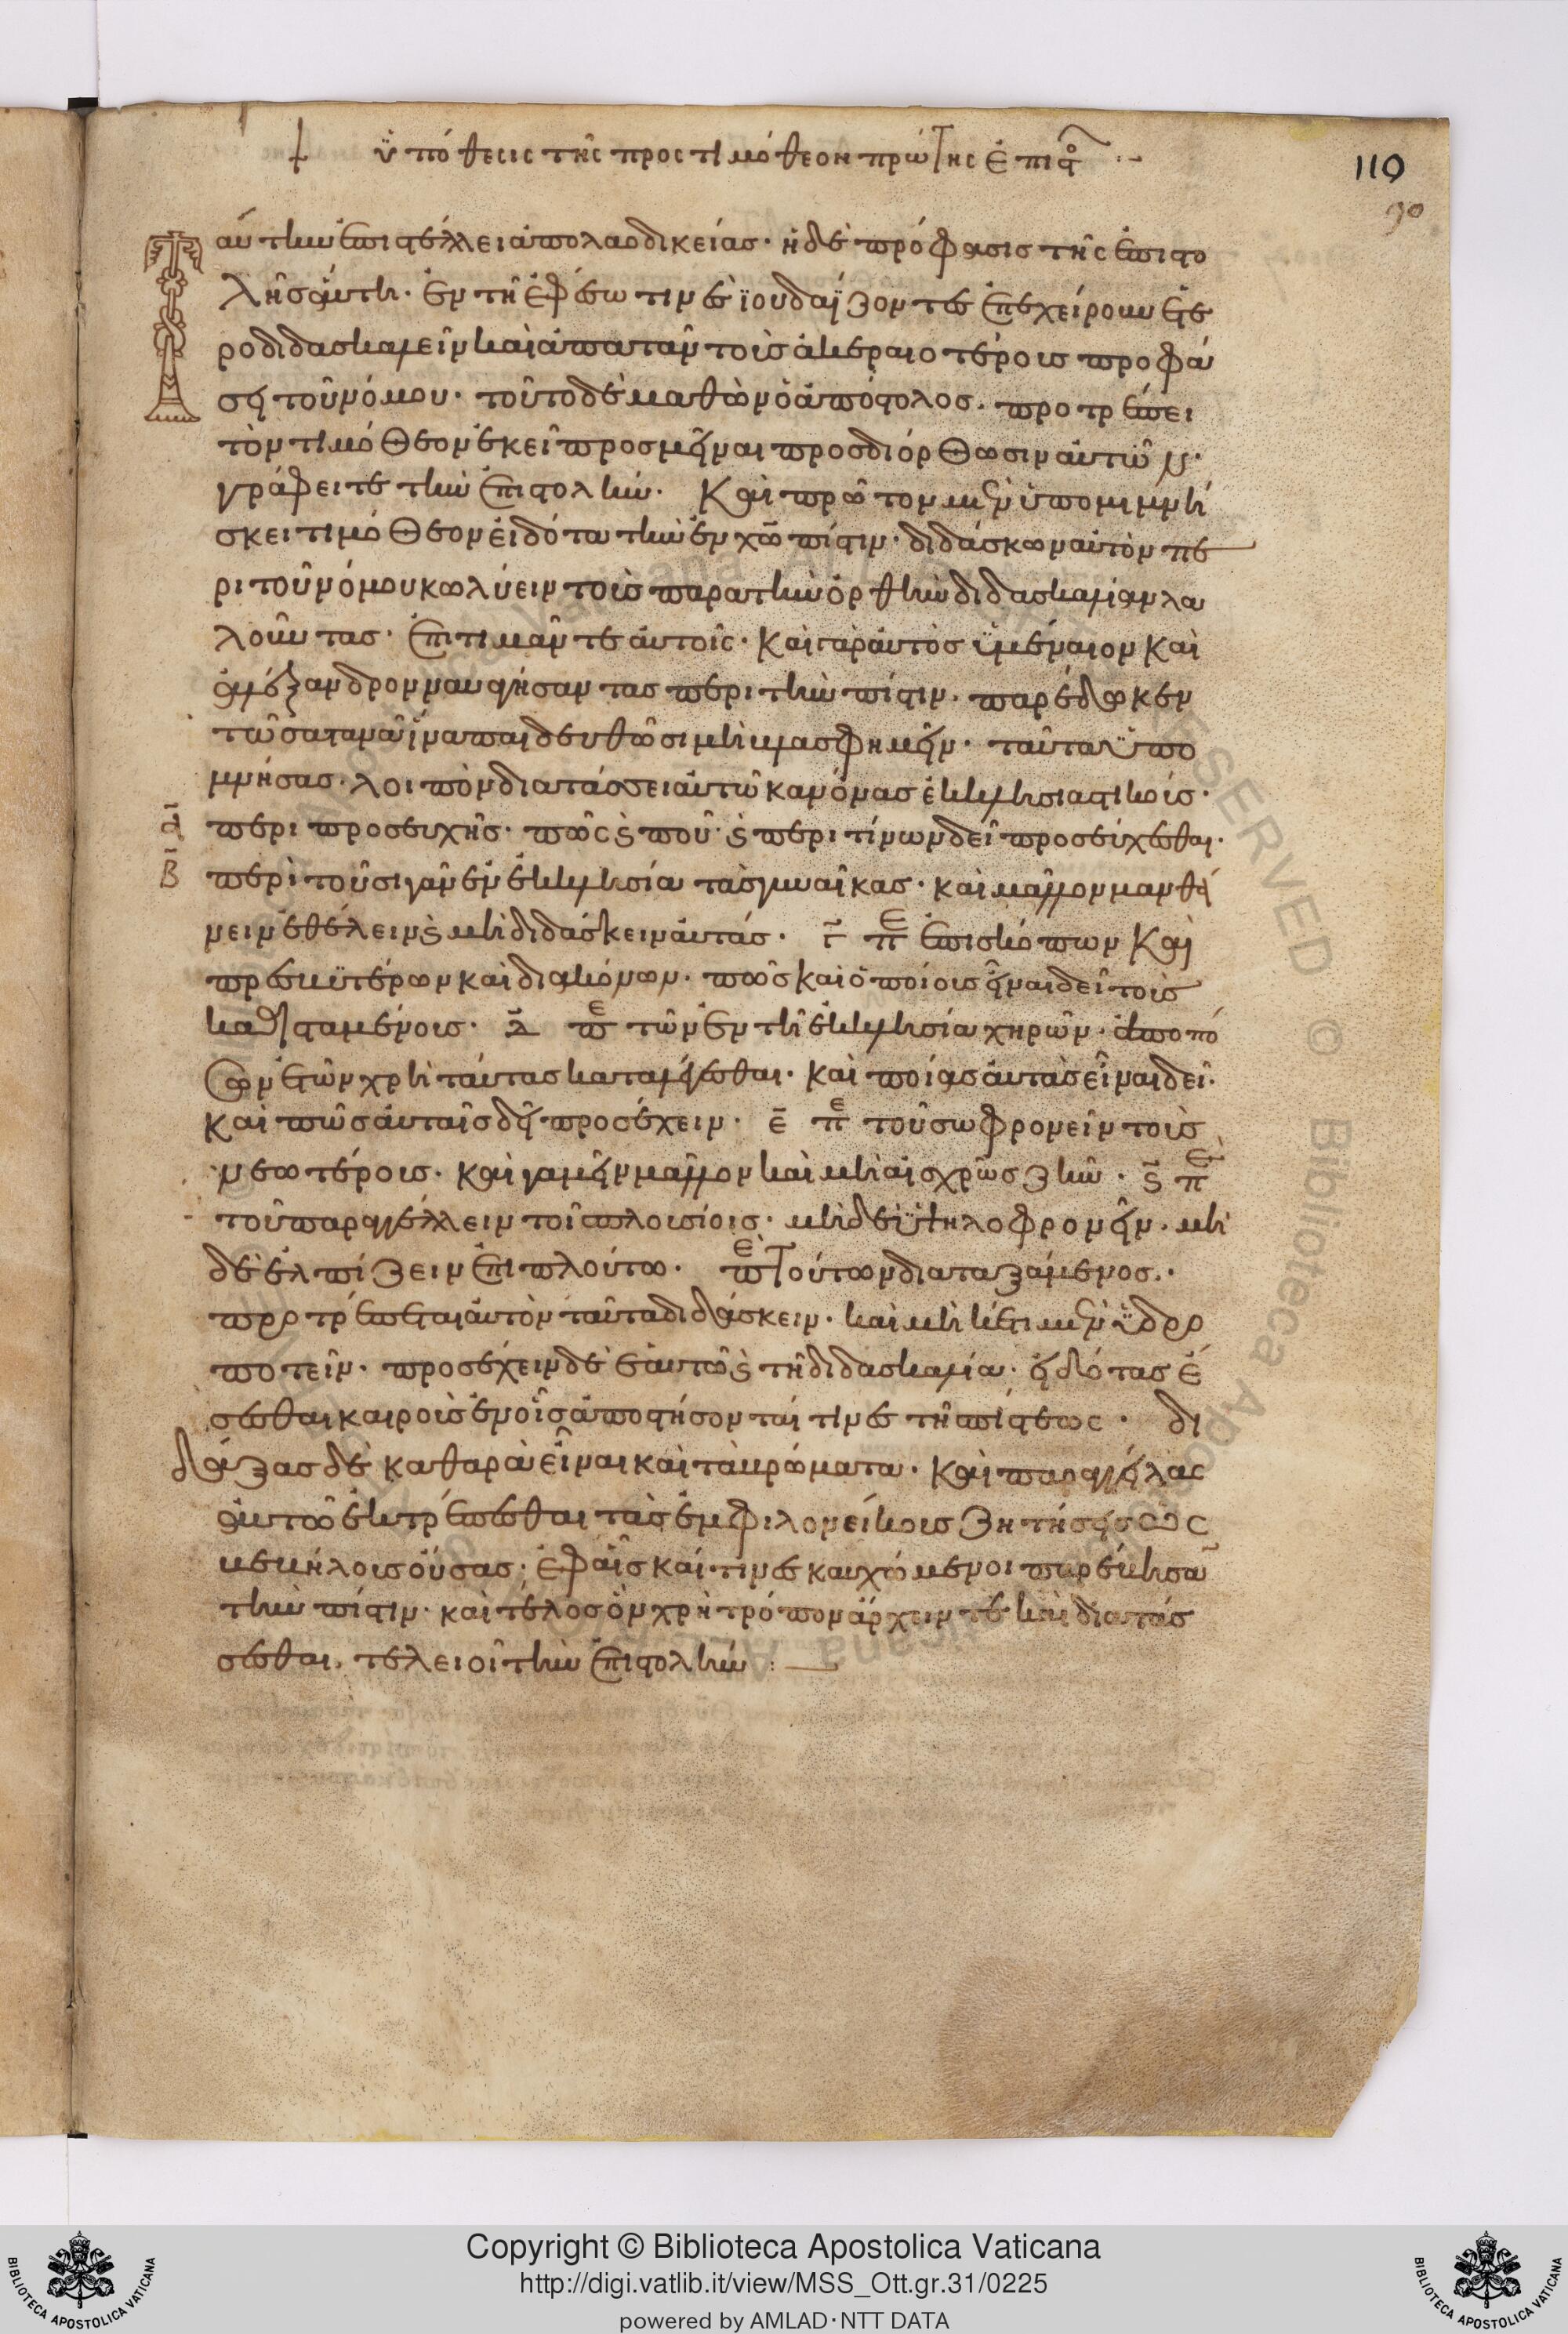 ὑπόθεσις τῆς προς τιμόθεον πρώτης ἐπιστο
110
90
Ταύτην ἐπιστέλλει ἀπο λαοδικείας· ἡ δὲ πρόφασις τῆς ἐπιστο
λῆς αὕτη· ἐν τῆ ἐφέσω τινὲς ἰουδαΐζοντες ἐπεχείρουν ἑτε
ροδιδασκαλεῖν καὶ ἀπατᾶν τοὺς ἀκεραιοτέρους προφά
σει τοῦ νόμου· τοῦτο δὲ μαθὼν ὁ ἀπόστολος. προτρέπει
τὸν τιμόθεον ἐκεῖ προσμεῖναι προς διόρθωσιν αὐτῶν·
γράφει τε τὴν ἐπιστολήν. Καὶ πρῶτον μὲν ὑπομιμνή
σκει τιμόθεον εἰδότα τὴν ἐν χω πίστιν· διδάσκων αὐτὸν πε
ρι τοῦ νόμου κωλύειν τοὺς παρα τὴν ὀρθὴν διδασκαλίαν λα
λοῦντας· ἐπιτιμᾶν τε αὐτοῖς· Καὶ γὰρ αὐτὸς ὑμέναιον καὶ
ἀλέξανδρον ναυαγήσαντας περι τὴν πίστιν. παρέδωκεν
τῶ σατανᾶ ἵνα παιδευθῶσι μὴ βλασφημεῖν· ταῦτα ὑπο
μνήσας. λοιπὸν διατάσσει αὐτῶ κανόνας ἐκκλησιαστικούς·
α περι προσευχῆς· πῶς ϛ ποῦ· ϛ περι τίνων δεῖ προσεύχεσθαι·
β περὶ τοῦ σιγᾶν ἐν ἐκκλησία τὰς γυναῖκας· καὶ μᾶλλον μανθά
νειν ἐθέλειν ϛ μὴ διδάσκειν αὐτάς· γ πε ἐπισκόπων Καὶ
πρεσβυτέρων καὶ διακόνων· πῶς καὶ ὁποίους εἶναι δεῖ τοὺς
καθισταμένους· δ πε τῶν ἐν τῆ ἐκκλησία χηρῶν· ἀπο πό
σων ἐτῶν χρὴ ταύτας καταλέγεσθαι· καὶ ποίας αὐτὰς εἶναι δεῖ·
Καὶ πῶς αὐταῖς δεῖ προσέχειν· ε πε τοῦ σωφρονεῖν τοὺς
νεωτέρους· καὶ γαμεῖν μᾶλλον καὶ μὴ αἰσχρῶς ζῆν· ϛ πε
τοῦ παραγγέλλειν τοῖς πλουσίοις· μὴ δὲ ὑψηλοφρονεῖν. μη
δὲ ἐλπίζειν ἐπι πλούτω· πε τούτων διαταξάμενος.
προτρέπεται αὐτὸν ταῦτα διδάσκειν· καὶ μὴ κέτι μὲν ὑδρο
ποτεῖν· προσέχειν δὲ ἑαυτῶ ϛ τῆ διδασκαλία· εἰδότας ἔ
σεσθαι καιροὺς ἐν οἷς ἀποστήσονταί τινες τῆς πίστεως· δι
δάξας δὲ καθαρὰ εἶναι καὶ τὰ βρώματα· Καὶ παραγγείλας
αὐτῶ ἐκτρέπεσθαι τὰς ἐν φιλονείκοις ζητήσεις ὡς
βεβήλους οὔσας· ἐφ αἷς καί τινες καυχώμενοι παρέβησα
τὴν πίστιν· καὶ τέλος ὃν χρὴ τρόπον ἄρχειν τὲ καὶ διατάσ
σεσθαι. τελειοῖ τὴν ἐπιστολήν :
Copyright © Biblioteca Apostolica Vaticana
http://digi.vatlib.it/view/MSS_Ott.gr.31/0225
powered by AMLAD·NTT DATA
BIBLIOTECA APOSTOLICA VATICANA
BIBLIOTECA APOSTOLICA VATICANA